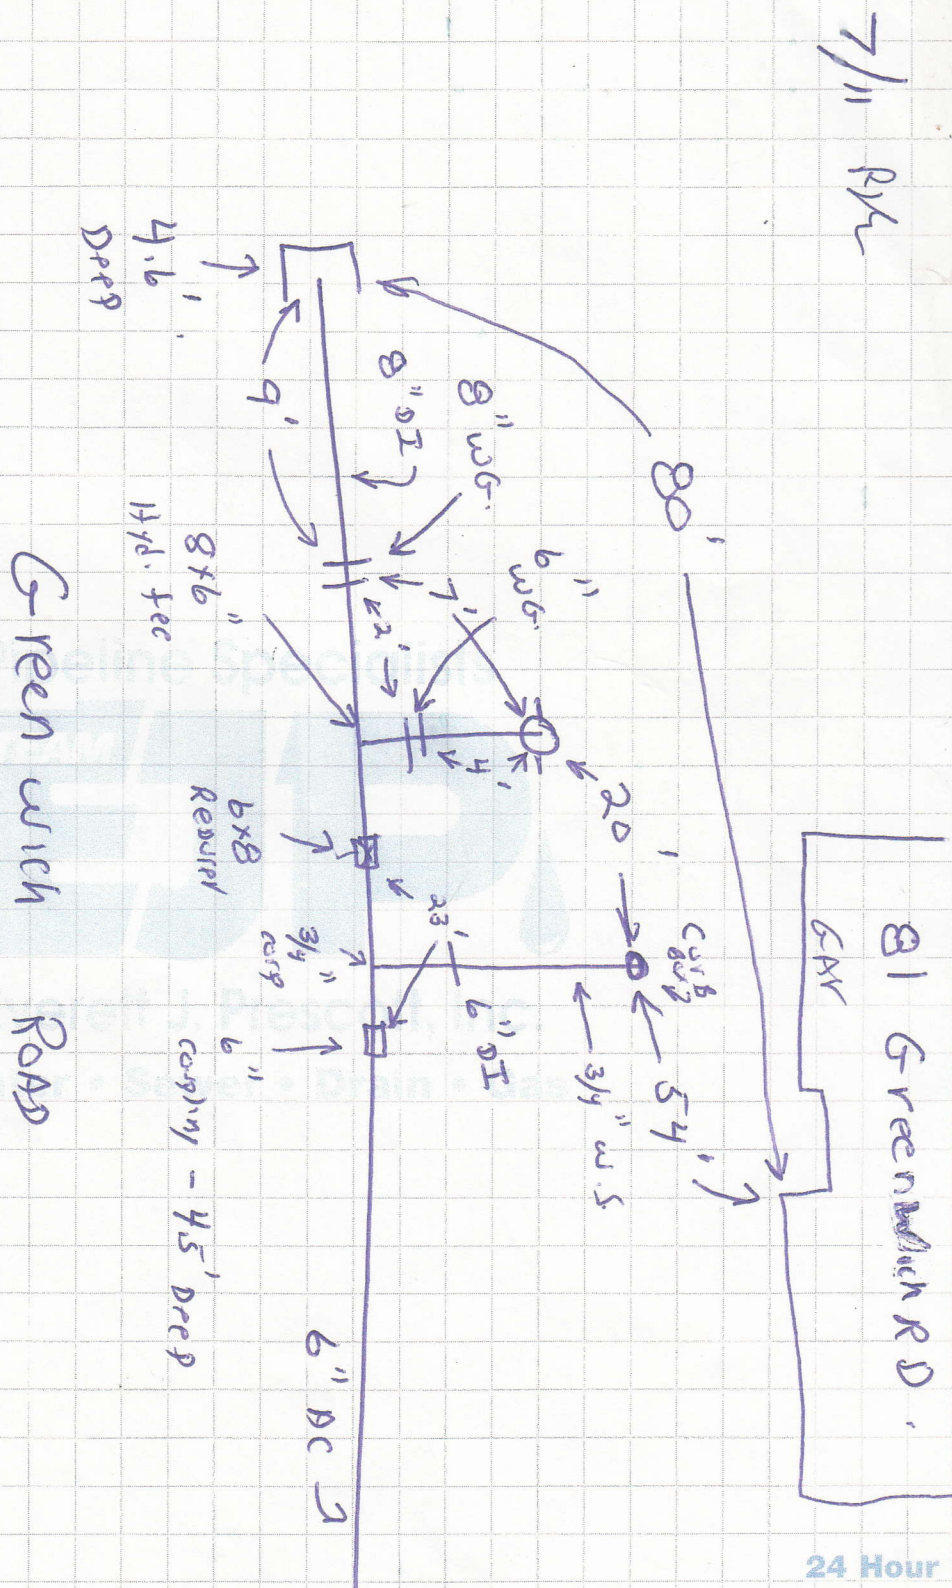 7/11
81 Greenwich RD.
GAr
80'
54'
Curb
Box
20'
3/4" w.s
6"
WG.
8" WG.
7'
8" DI
2'
4'
23'
6" DI
9'
4.6'
Deep
8x6"
Hyd. tee
6x8
Reducer
3/4"
corp
6"
coupling - 4.5' Deep
6" AC
Greenwich ROAD
Pipeline Specialists
TEAM
EJP
Everett J. Prescott, Inc.
Water • Sewer • Drain • Gas
24 Hour